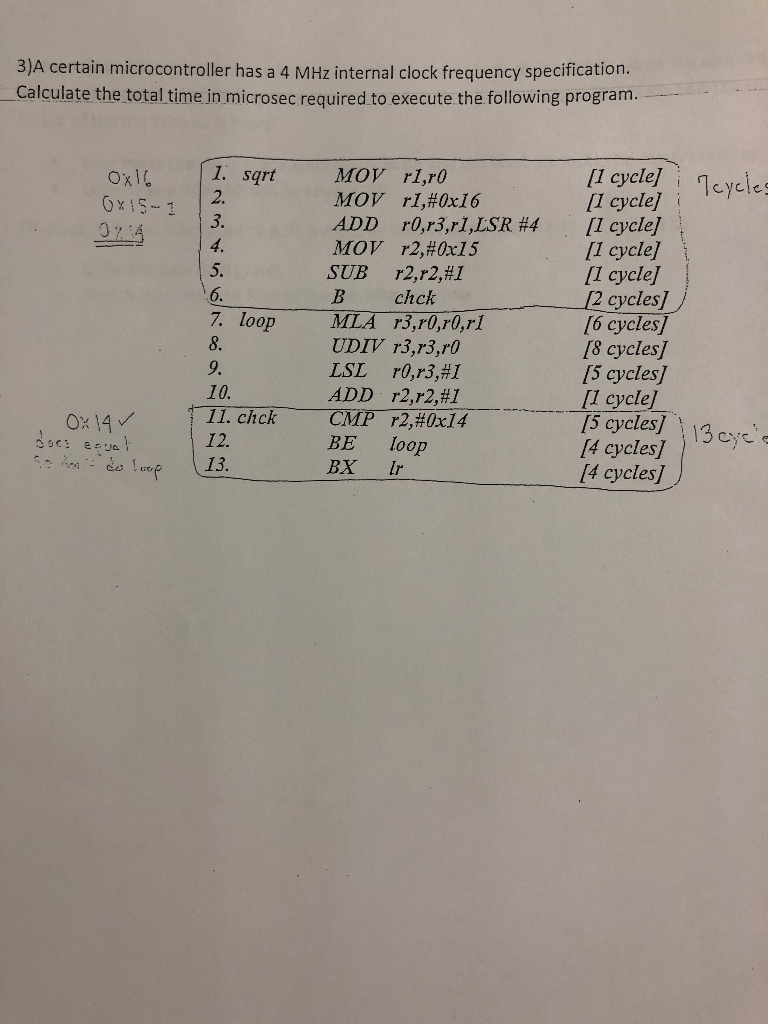 3)A certain microcontroller has a 4 MHz internal clock frequency specification.
Calculate the total time in microsec required to execute the following program.
0x16
0x15-1
0x14
1. sqrt MOV r1,r0 [1 cycle]
7cycles
2. MOV r1,#0x16 [1 cycle]
3. ADD r0,r3,r1,LSR #4 [1 cycle]
4. MOV r2,#0x15 [1 cycle]
5. SUB r2,r2,#1 [1 cycle]
6. B chck [2 cycles]
7. loop MLA r3,r0,r0,r1 [6 cycles]
8. UDIV r3,r3,r0 [8 cycles]
9. LSL r0,r3,#1 [5 cycles]
10. ADD r2,r2,#1 [1 cycle]
11. chck CMP r2,#0x14 [5 cycles]
12. BE loop [4 cycles]
13. BX lr [4 cycles]
0x14 ✓
does equal
so do loop
13